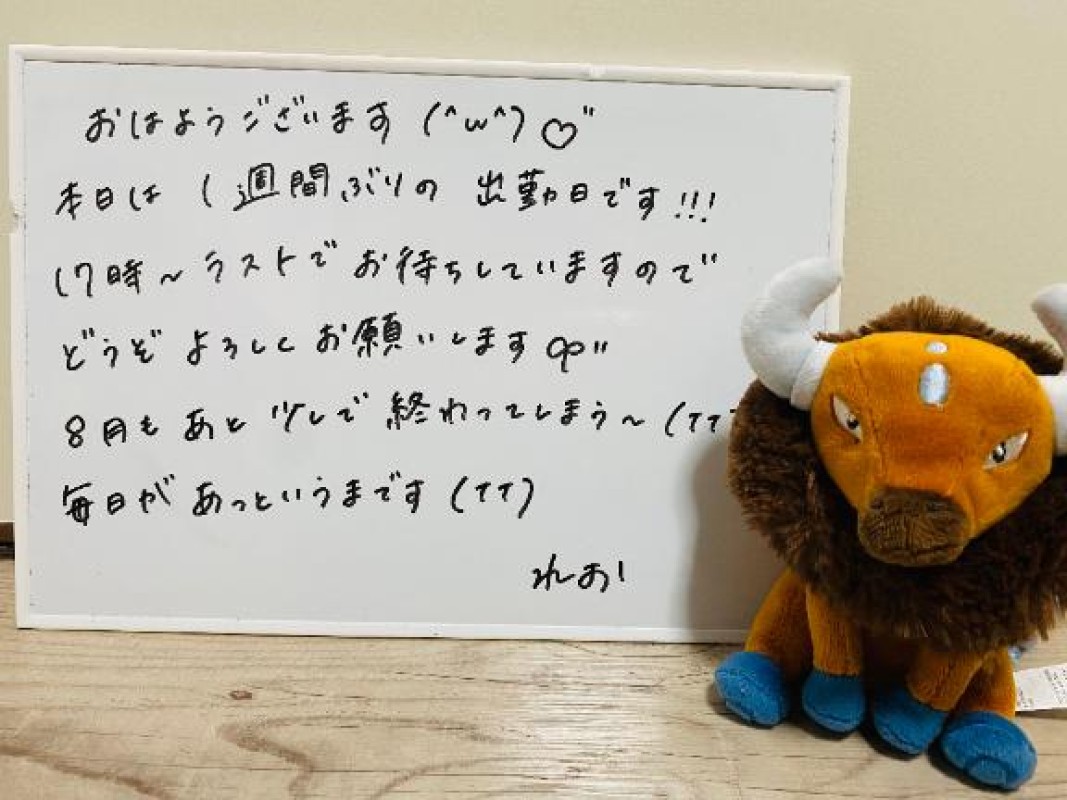 おはようございます (^ω^)♡"
本日は 1週間ぶりの 出勤日です!!!
17時～ラストで お待ちしていますので
どうぞ よろしく お願いします
8月も あと 少しで 終わってしまう～(TT
毎日が あっというまです (TT)
れお